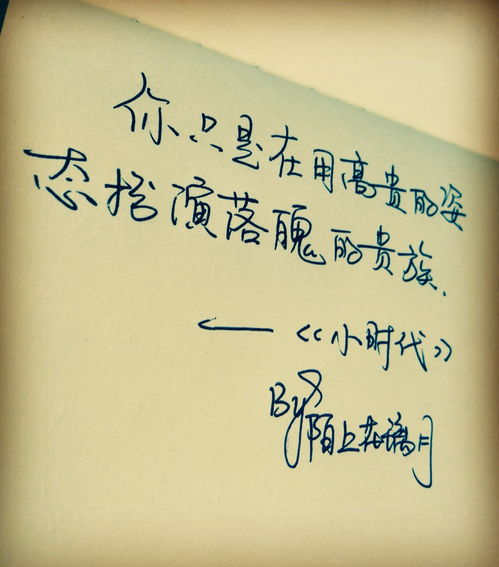 你只是在用高贵的姿
态扮演落魄的贵族.
—《小时代》
By 陌上